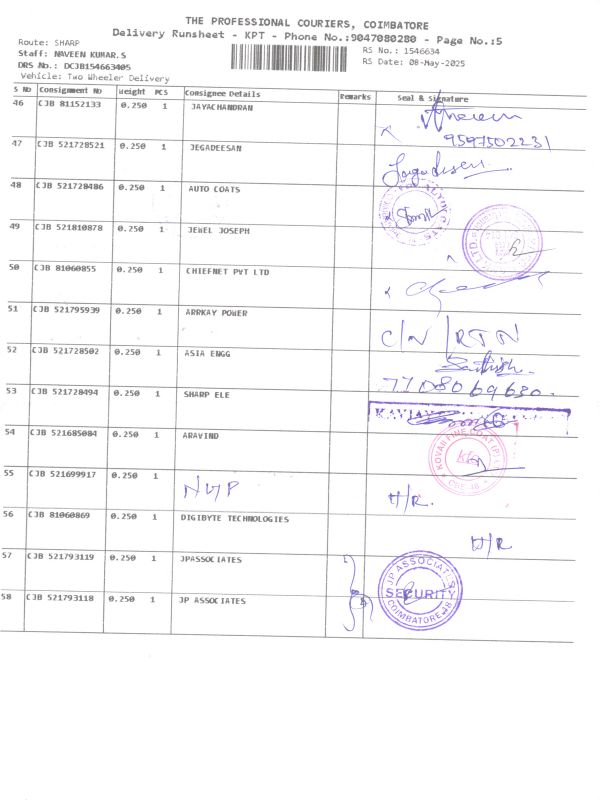 THE PROFESSIONAL COURIERS, COIMBATORE
Delivery Runsheet - KPT - Phone No.:9047080280 - Page No.:5
Route: SHARP
Staff: NAVEEN KUMAR.S
DRS No.: DCJB154663405
Vehicle: Two Wheeler Delivery
RS No.: 1546634
RS Date: 08-May-2025
S No Consignment No Weight PCS Consignee Details Remarks Seal & Signature
46 CJB 81152133 0.250 1 JAYACHANDRAN
9597502231
47 CJB 521728521 0.250 1 JEGADEESAN Jagadeesan
48 CJB 521728486 0.250 1 AUTO COATS
49 CJB 521810878 0.250 1 JEWEL JOSEPH
50 CJB 81060855 0.250 1 CHIEFNET PVT LTD
51 CJB 521795939 0.250 1 ARRKAY POWER C/N/RTN
52 CJB 521728502 0.250 1 ASIA ENGG Sathish
7708069630.
53 CJB 521728494 0.250 1 SHARP ELE
54 CJB 521685084 0.250 1 ARAVIND KOVAI FINE COAT (P) LTD
55 CJB 521699917 0.250 1 H/R.
56 CJB 81060869 0.250 1 DIGIBYTE TECHNOLOGIES H/R
57 CJB 521793119 0.250 1 JPASSOCIATES
58 CJB 521793118 0.250 1 JP ASSOCIATES
JP ASSOCIATES
SECURITY
COIMBATORE-18